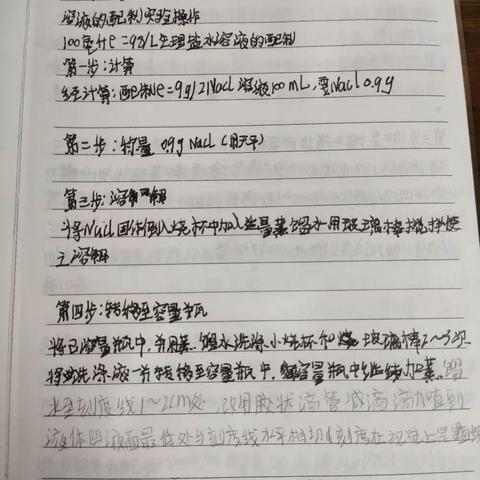 溶液的配制实验操作
100毫升ρ=9g/L生理盐水溶液的配制
第一步:计算
经计算:配制ρ=9g/L NaCl 溶液100mL,要NaCl 0.9g
第二步:称量 0.9g NaCl (用天平)
第三步:溶解
将NaCl固体倒入烧杯中加入适量蒸馏水用玻璃棒搅拌使
之溶解
第四步:转移至容量瓶
将已 容量瓶中,并用蒸馏水洗涤小烧杯和 玻璃棒2~3次
将 洗涤液一并转移至容量瓶中, 容量瓶中 加蒸馏
水至刻度线1~2cm处,改用胶状滴管 滴 加直到
液体凹液面最低处与刻度线水平相切(刻度在视线上